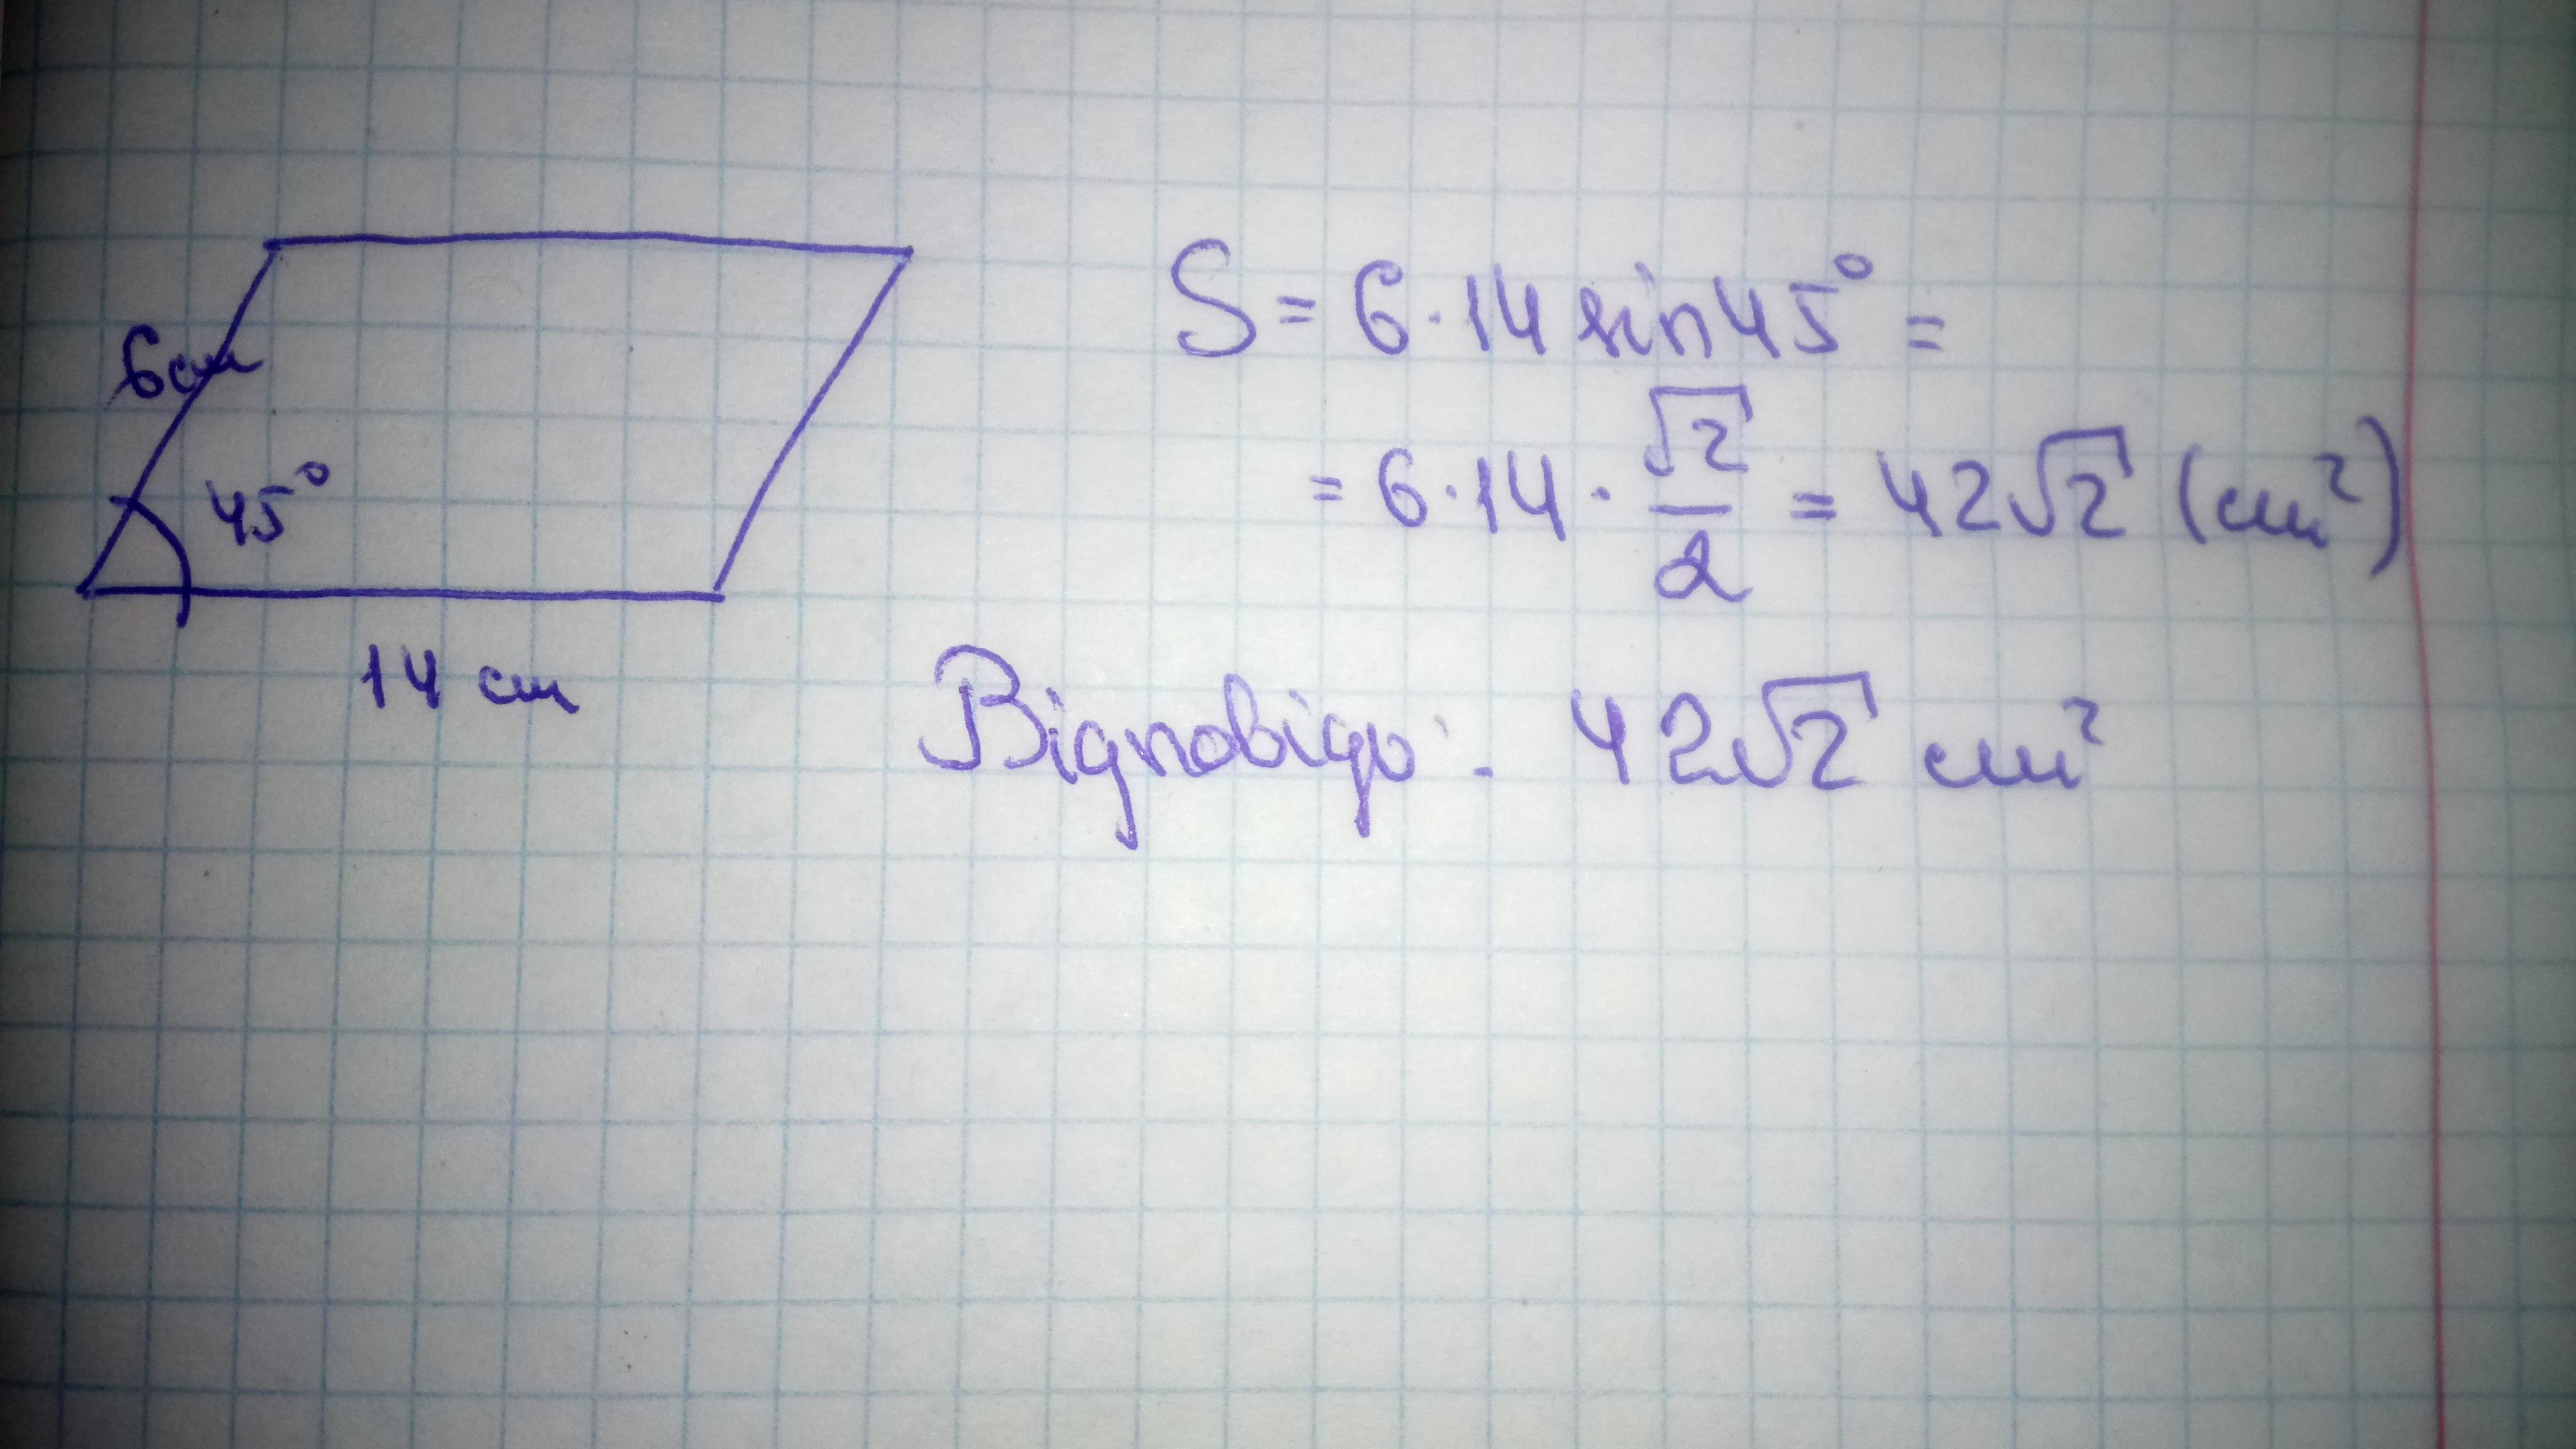 6см
45°
14 см
S = 6·14 sin45° =
= 6·14 · √2/2 = 42√2 (см²)
Відповідь: 42√2 см²